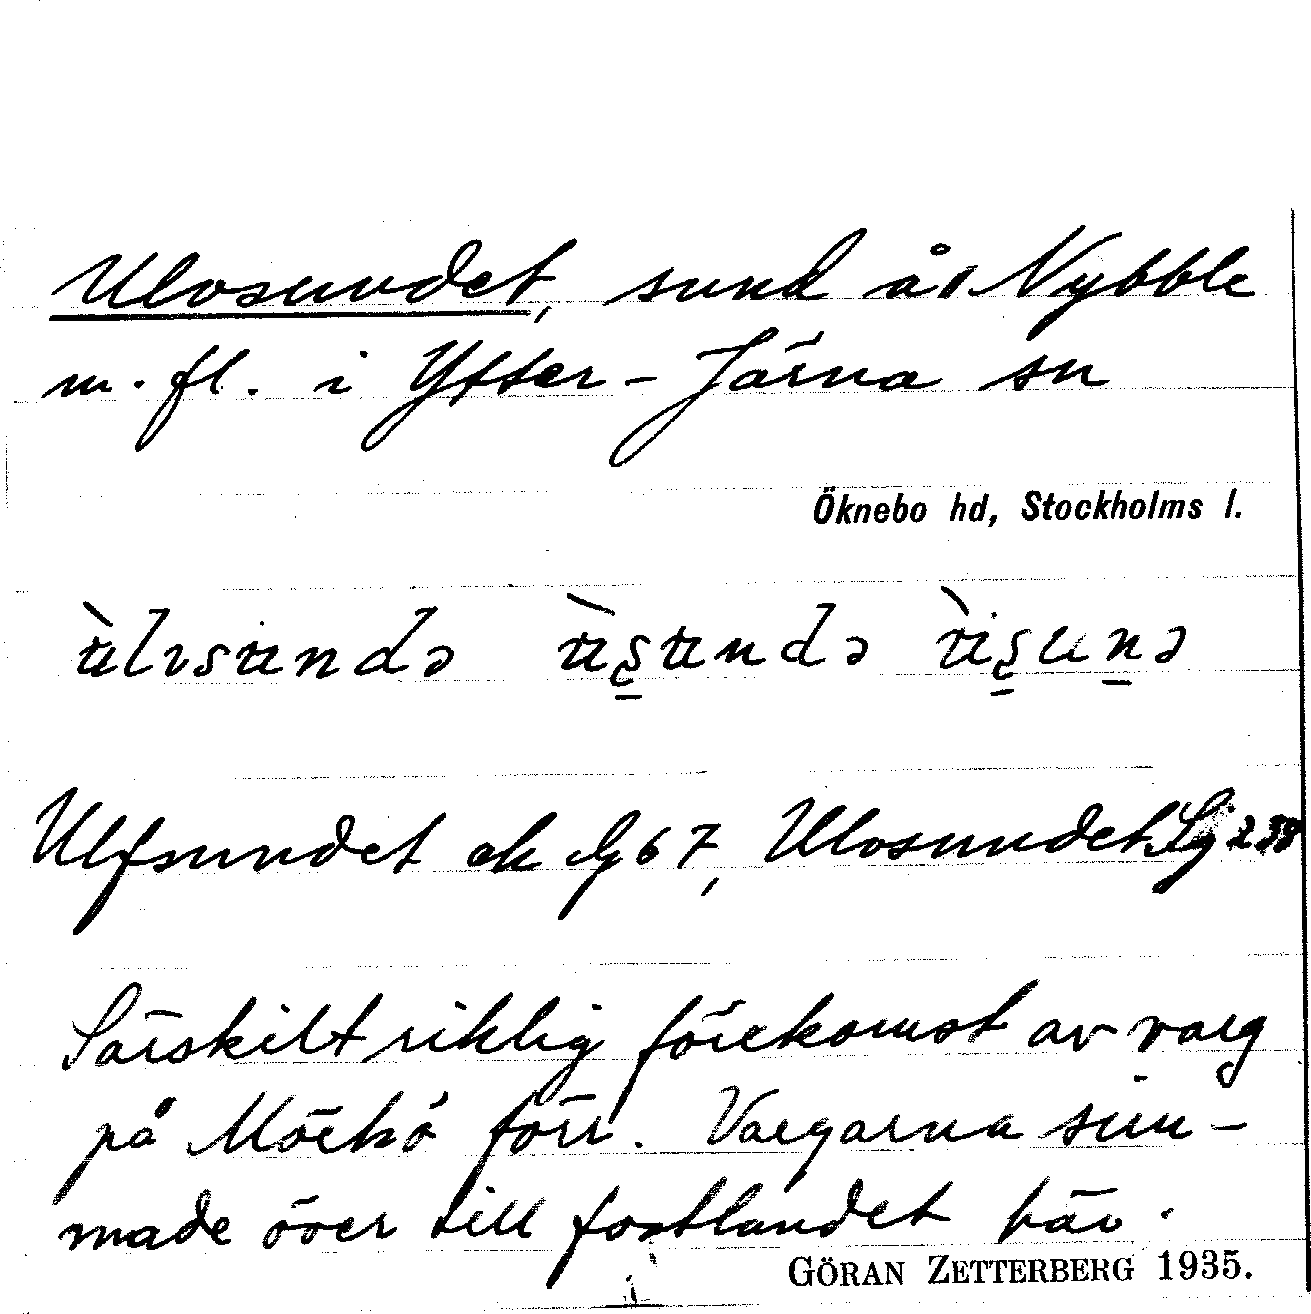 Ulvsundet, sund åt Nybble
m. fl. i Ytter-Järna sn
Öknebo hd, Stockholms l.
Ulfsundet ek 67, Ulvsundet Lg 238
Särskilt riklig förekomst av varg
på Mörkö förr. Vargarna sim-
made över till fastlandet här.
GÖRAN ZETTERBERG 1935.